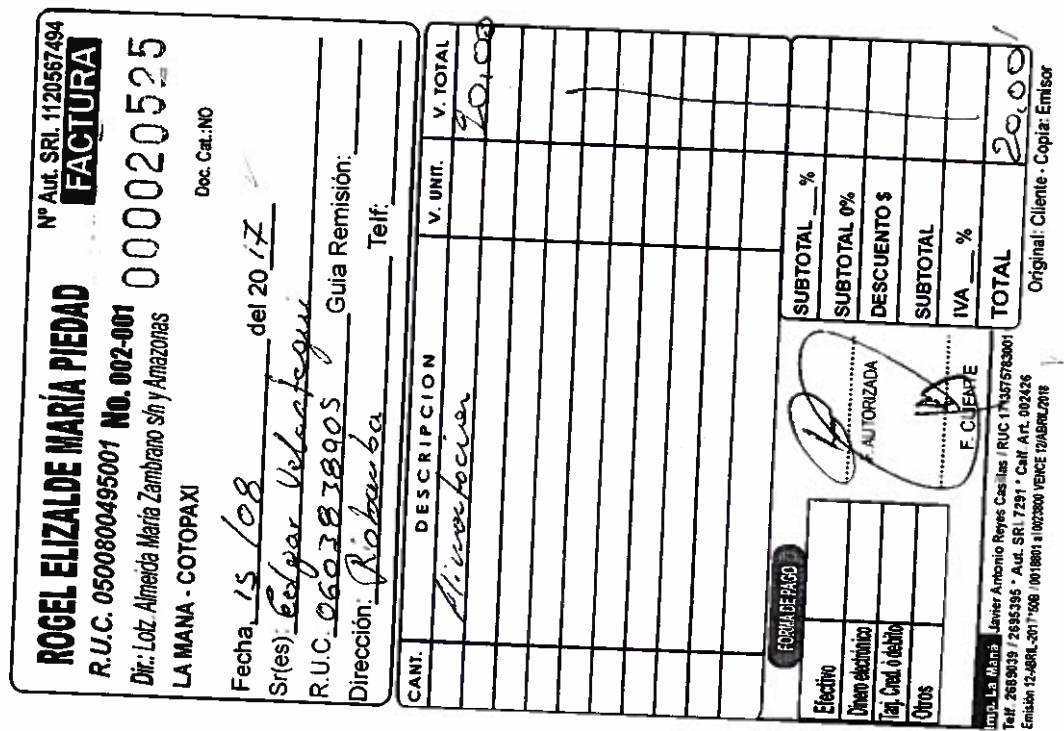 ROGEL ELIZALDE MARÍA PIEDAD
Nº Aut. SRI. 1120567494
R.U.C. 0500800495001 No. 002-001
FACTURA
Dir.: Lotz. Almeida María Zambrano s/n y Amazonas
000020525
LA MANA - COTOPAXI
Doc. Cat.:NO
Fecha 15/08 del 2017
Sr(es): Edgar Velastegui
R.U.C. 0603838905 Guia Remisión:
Dirección: Riobamba Telf:
CANT. DESCRIPCION V. UNIT. V. TOTAL
20,00
FORMA DE PAGO
Efectivo
Dinero electrónico
Tarj. Cred. ó debito
Otros
F. AUTORIZADA
F. CLIENTE
SUBTOTAL __%
SUBTOTAL 0%
DESCUENTO $
SUBTOTAL
IVA __%
TOTAL 20,00
Imp. La Maná Javier Antonio Reyes Casillas / RUC 1713575783001
Telf. 2689039 / 2695395 * Aut. SRI. 7291 * Calf. Art. 002426
Emisión 12-ABRIL-2017 *50B / 0018801 al 0023800 VENCE 12/ABRIL/2018
Original: Cliente - Copia: Emisor